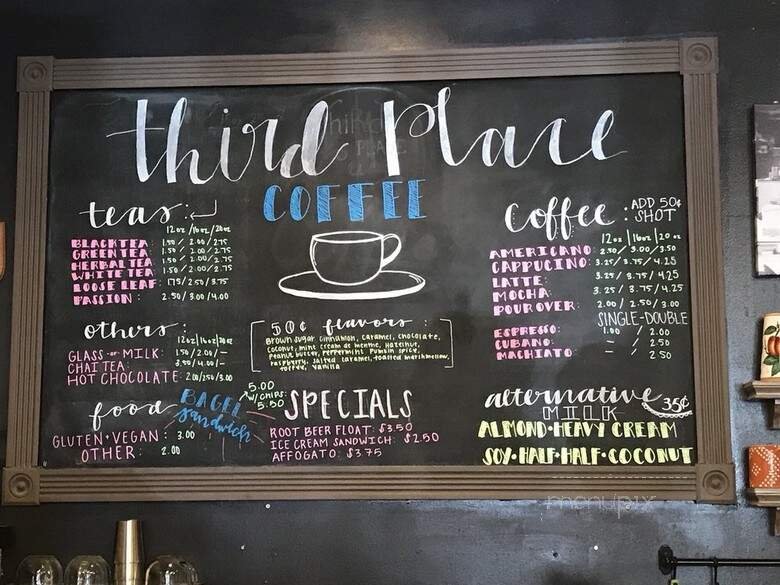 third Place
COFFEE
teas:
12oz / 16oz / 20oz
BLACK TEA: 1.50 / 2.00 / 2.75
GREEN TEA: 1.50 / 2.00 / 2.75
HERBAL TEA: 1.50 / 2.00 / 2.75
WHITE TEA: 1.50 / 2.00 / 2.75
LOOSE LEAF: 1.75 / 2.50 / 3.75
PASSION: 2.50 / 3.00 / 4.00
others:
12oz | 16oz | 20oz
GLASS -or- MILK: 1.50 / 2.00 / —
CHAI TEA: 3.50 / 4.00 / —
HOT CHOCOLATE: 2.00 / 2.50 / 3.00
food
GLUTEN + VEGAN: 3.00
OTHER: 2.00
BAGEL
Sandwich
5.00
W/ CHIPS:
5.50
50¢ flavors:
Brown sugar cinnamon, caramel, chocolate,
coconut, mint creme de menthe, hazelnut,
Peanut butter, peppermint, pumpkin spice,
raspberry, salted caramel, toasted marshmellow,
toffee, vanilla
SPECIALS
ROOT BEER FLOAT: $3.50
ICE CREAM SANDWICH: $2.50
AFFOGATO: $3.75
Coffee: ADD 50¢
SHOT
12oz | 16oz | 20oz
AMERICANO: 2.50 / 3.00 / 3.50
CAPPUCINO: 3.25 / 3.75 / 4.25
LATTE: 3.25 / 3.75 / 4.25
MOCHA: 3.25 / 3.75 / 4.25
POUR OVER: 2.00 / 2.50 / 3.00
SINGLE-DOUBLE
ESPRESSO: 1.00 / 2.00
CUBANO: — / 2.50
MACHIATO: — / 2.50
alternative
MILK 35¢
ALMOND • HEAVY CREAM
SOY • HALF+HALF • COCONUT
menupix